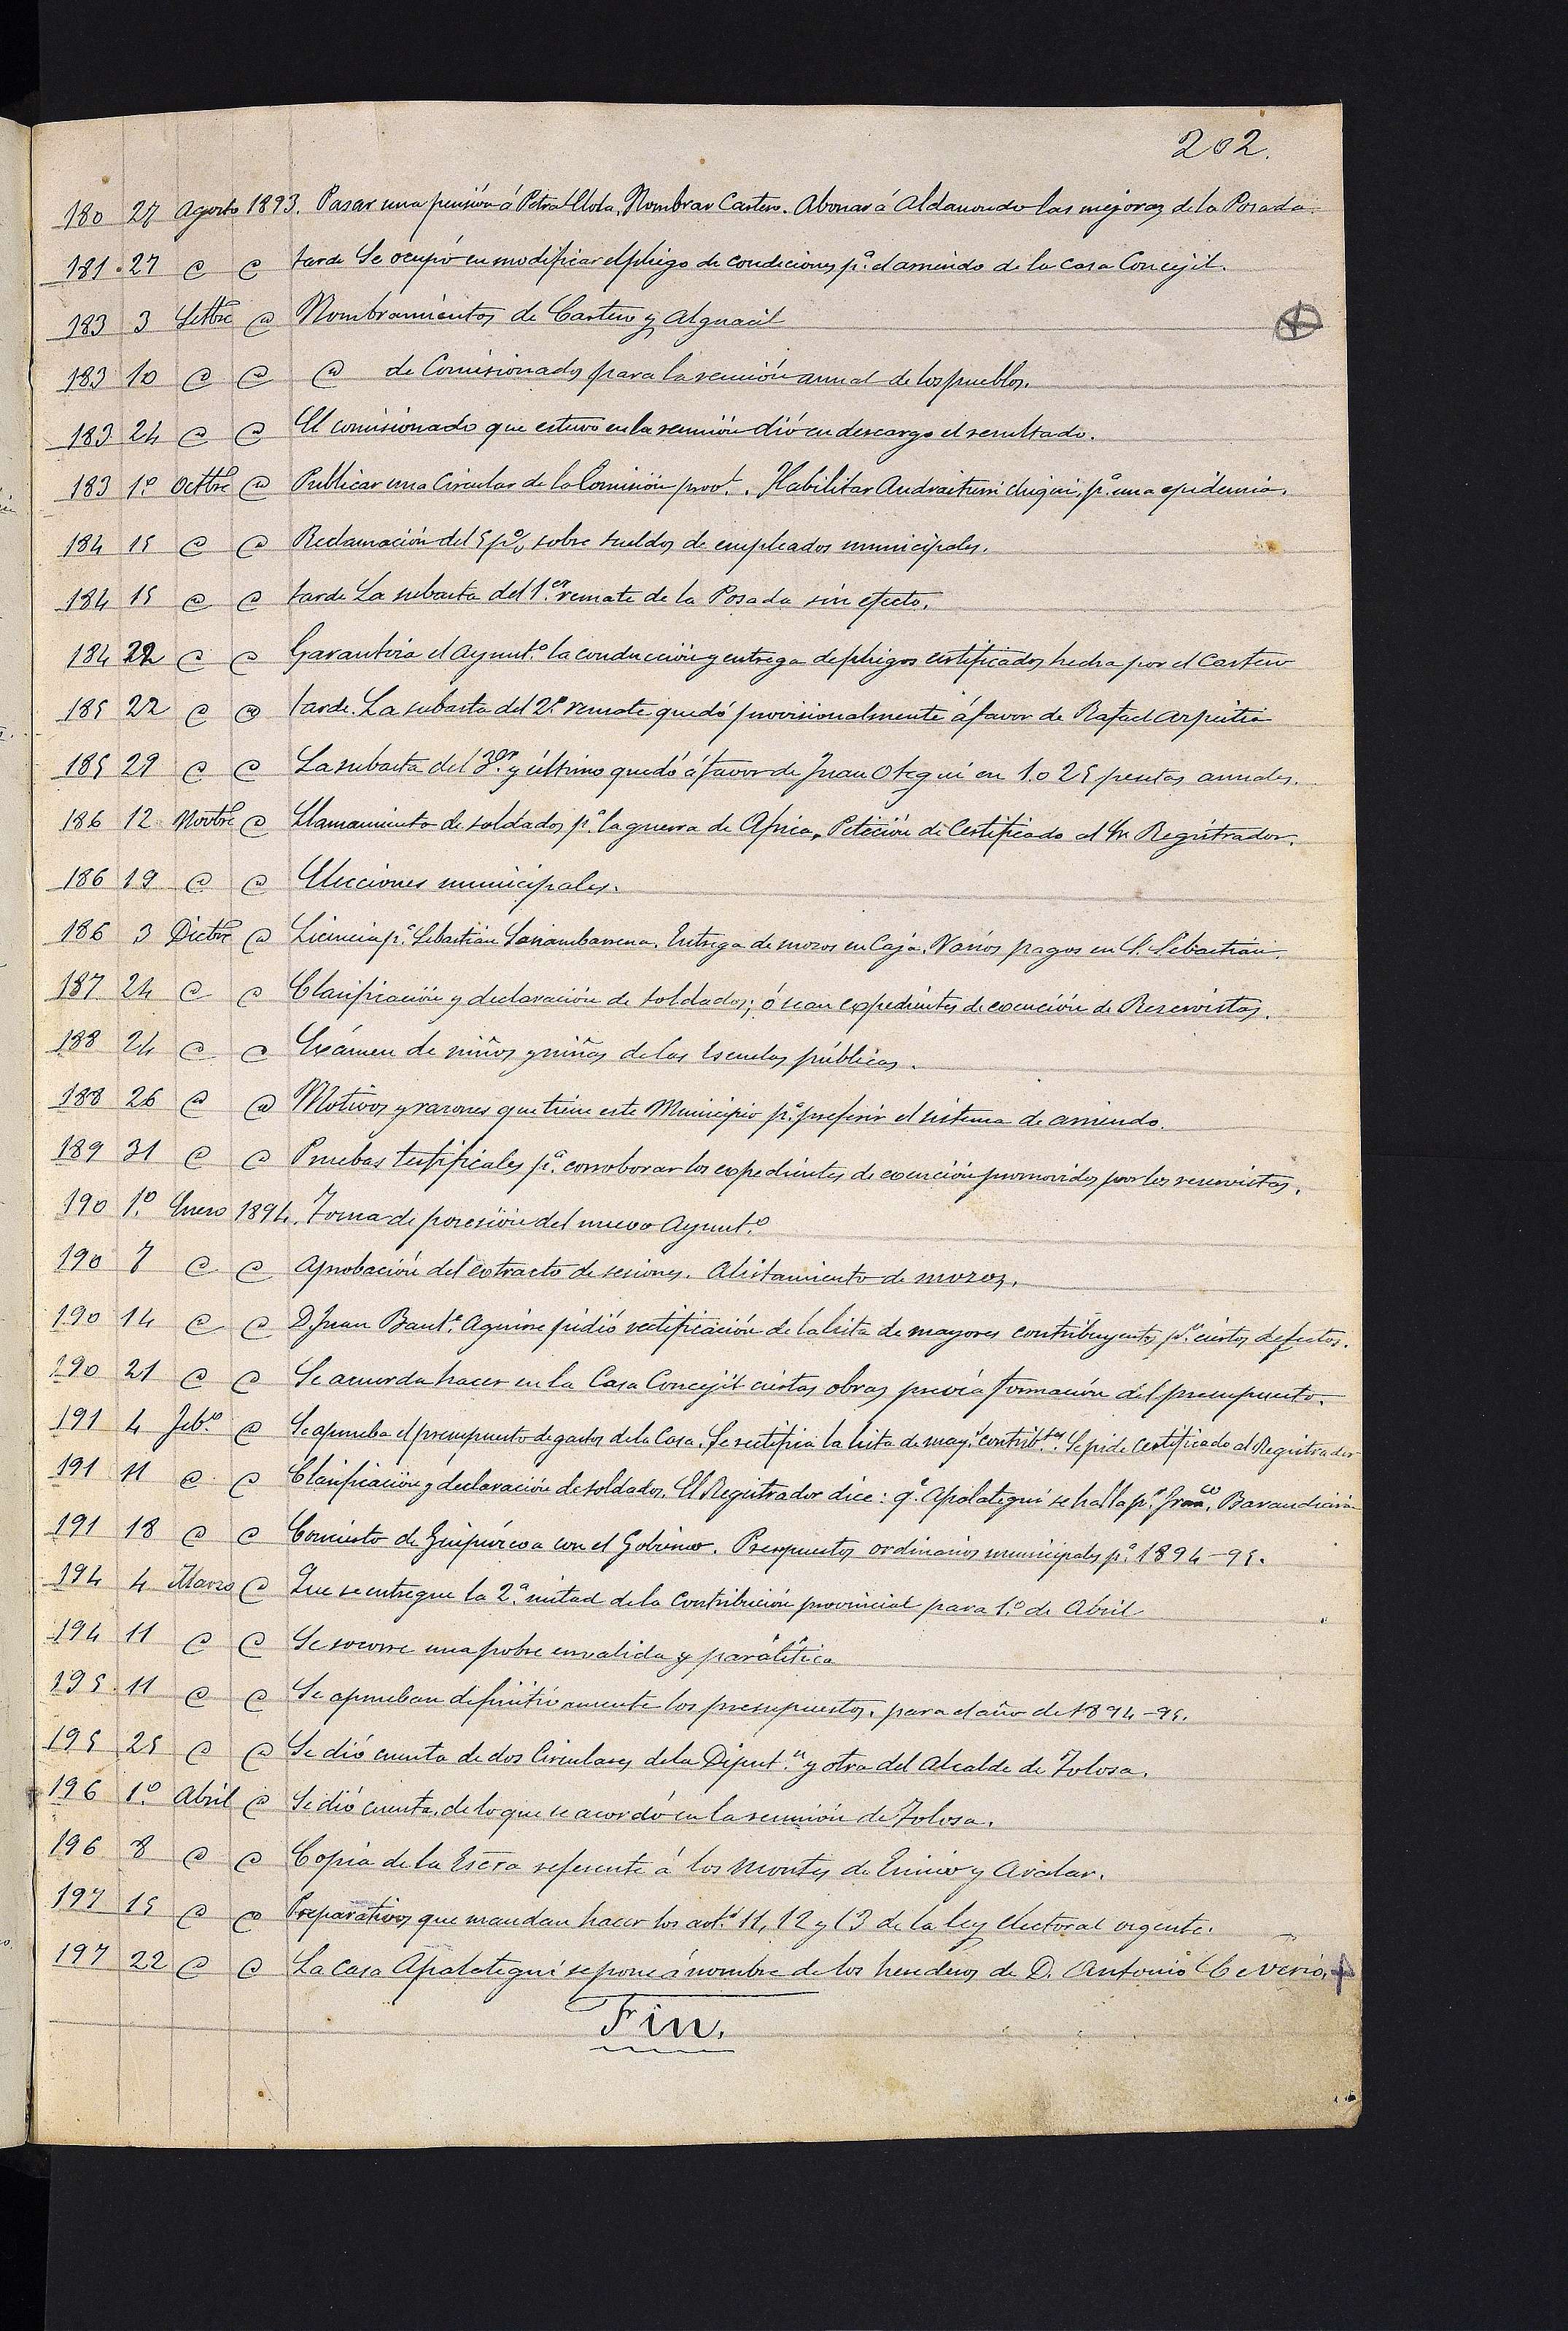 202.
180 27 Agosto 1893. Pasar una pensión á Petra Elola. Nombrar Cartero. Abonar á Aldanondo las mejoras de la Posada.
181 27 @ @ tarde Se ocupó en modificar el pliego de condiciones pª. el arriendo de la Casa Concejil.
183 3 Setbre @ Nombramientos de Cartero y Alguacil
183 10 @ @ @ de Comisionados para la reunión anual de los pueblos.
183 24 @ @ El comisionado que estuvo en la reunión dió en descargo el resultado.
183 1º Octbre @ Publicar una Circular de la Comisión provl. Habilitar pª. una epidemia.
184 15 @ @ Reclamación del 5 p% sobre sueldos de empleados municipales.
184 15 @ @ tarde La subasta del 1.er remate de la Posada sin efecto.
184 22 @ @ Garantiza el Ayuntº. la conducción y entrega de pliegos certificados hecha por el Cartero
185 22 @ @ tarde. La subasta del 2º. remate quedó provisionalmente á favor de Rafael Arpeitia
185 29 @ @ La subasta del 3.er y último quedó á favor de Juan Otegui en 1.025 pesetas anuales.
186 12 Novbre @ Llamamiento de soldados pª. la guerra de Africa. Petición de Certificado al Sr. Registrador.
186 19 @ @ Elecciones municipales.
186 3 Dicbre @ Licencia pª. Sebastián Entrega de mozos en Caja. Varios pagos en S. Sebastián.
187 24 @ @ Clasificación y declaración de soldados; ó sean expedientes de excención de Reservistas.
188 24 @ @ Exámen de niños y niñas de las Escuelas públicas.
188 26 @ @ Motivos y razones que tiene este Municipio pª. preferir el sistema de arriendo.
189 31 @ @ Pruebas testificales pª. corroborar los expedientes de excención promovidos por los reservistas.
190 1º. Enero 1894. Toma de posesión del nuevo Ayuntº.
190 7 @ @ Aprobación del extracto de sesiones. Alistamiento de mozos.
190 14 @ @ D. Juan Bautª. Aguirre pidió rectificación de la lista de mayores contribuyentes, pr. ciertos defectos.
190 21 @ @ Se acuerda hacer en la Casa Concejil ciertas obras previa formación del presupuesto.
191 4 Febº. @ Se aprueba el presupuesto de gastos de la Casa. Se rectifica la lista de mays. contribtes. Se pide certificado al Registrador
191 11 @ @ Clasificación y declaración de soldados. El Registrador dice: q. Apalategui se halla pr. Franco. Barandiarán
191 18 @ @ Concierto de Guipúzcoa con el Gobierno. Presupuestos ordinarios municipales pª. 1894-95.
194 4 Marzo @ Que se entregue la 2ª. mitad de la Contribución provincial para 1º. de Abril
194 11 @ @ Se socorre una pobre envalida y paralítica
195 11 @ @ Se aprueban definitivamente los presupuestos, para el año de 1894-95.
195 25 @ @ Se dió cuenta de dos Circulares de la Diputn. y otra del Alcalde de Tolosa.
196 1º. Abril @ Se dió cuenta, de lo que se acordó en la reunión de Tolosa.
196 8 @ @ Copia de la Escra referente á los Montes de Enirio y Aralar.
197 15 @ @ Preparativos que mandan hacer los arts. 11, 12 y 13 de la ley electoral vigente.
197 22 @ @ La casa Apalategui se pone á nombre de los herederos de D. Antonio Ceverio.
Fin.